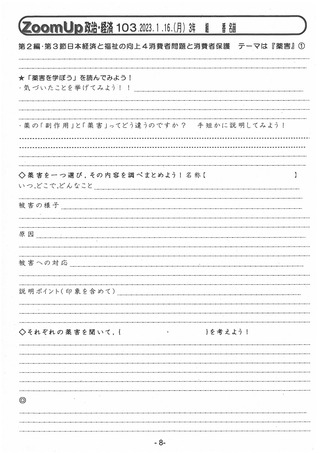 ZoomUp 政治・経済 103 2023.1.16.(月) 3年 組 番 名前
第2編・第3節日本経済と福祉の向上4消費者問題と消費者保護 テーマは『薬害』①
★「薬害を学ぼう」を読んでみよう!
・気づいたことを挙げてみよう!!
・薬の「副作用」と「薬害」ってどう違うのですか? 手短かに説明してみよう!
◇薬害を一つ選び、その内容を調べまとめよう!名称【 】
いつ、どこで、どんなこと
被害の様子
原因
被害への対応
説明ポイント(印象を含めて)
◇それぞれの薬害を聞いて、{ ・ }を考えよう!
◎
-8-